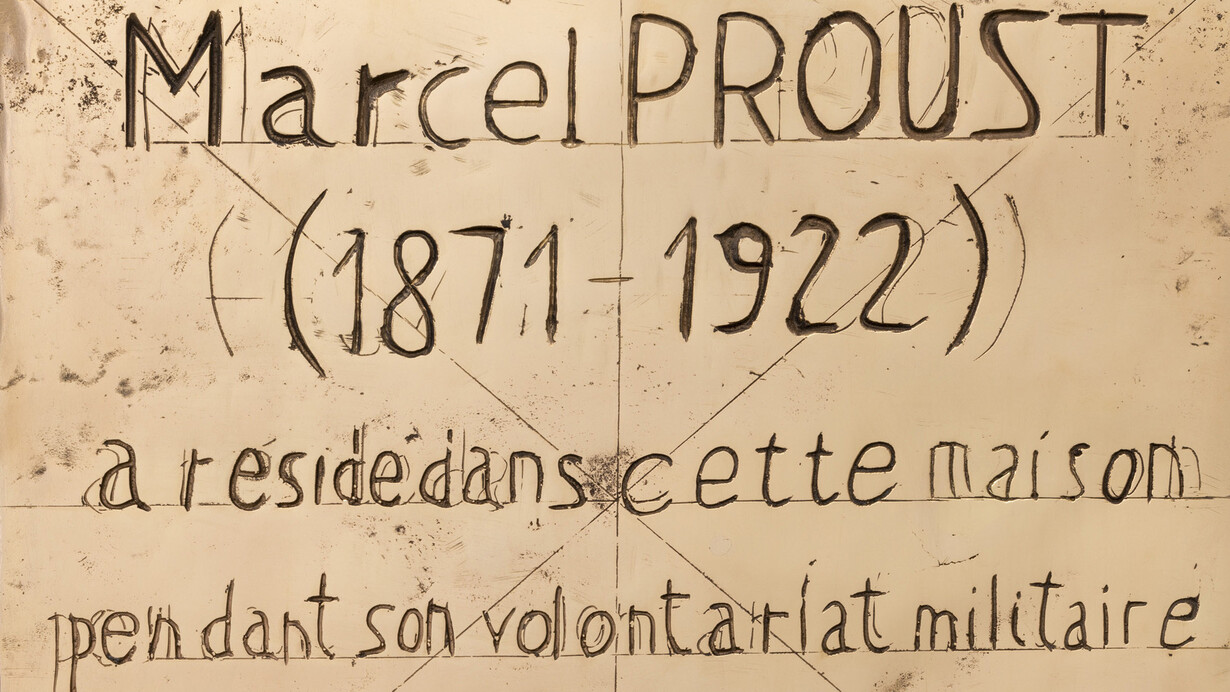 Marcel PROUST
(1871 – 1922)
a résidé dans cette maison
pendant son volontariat militaire